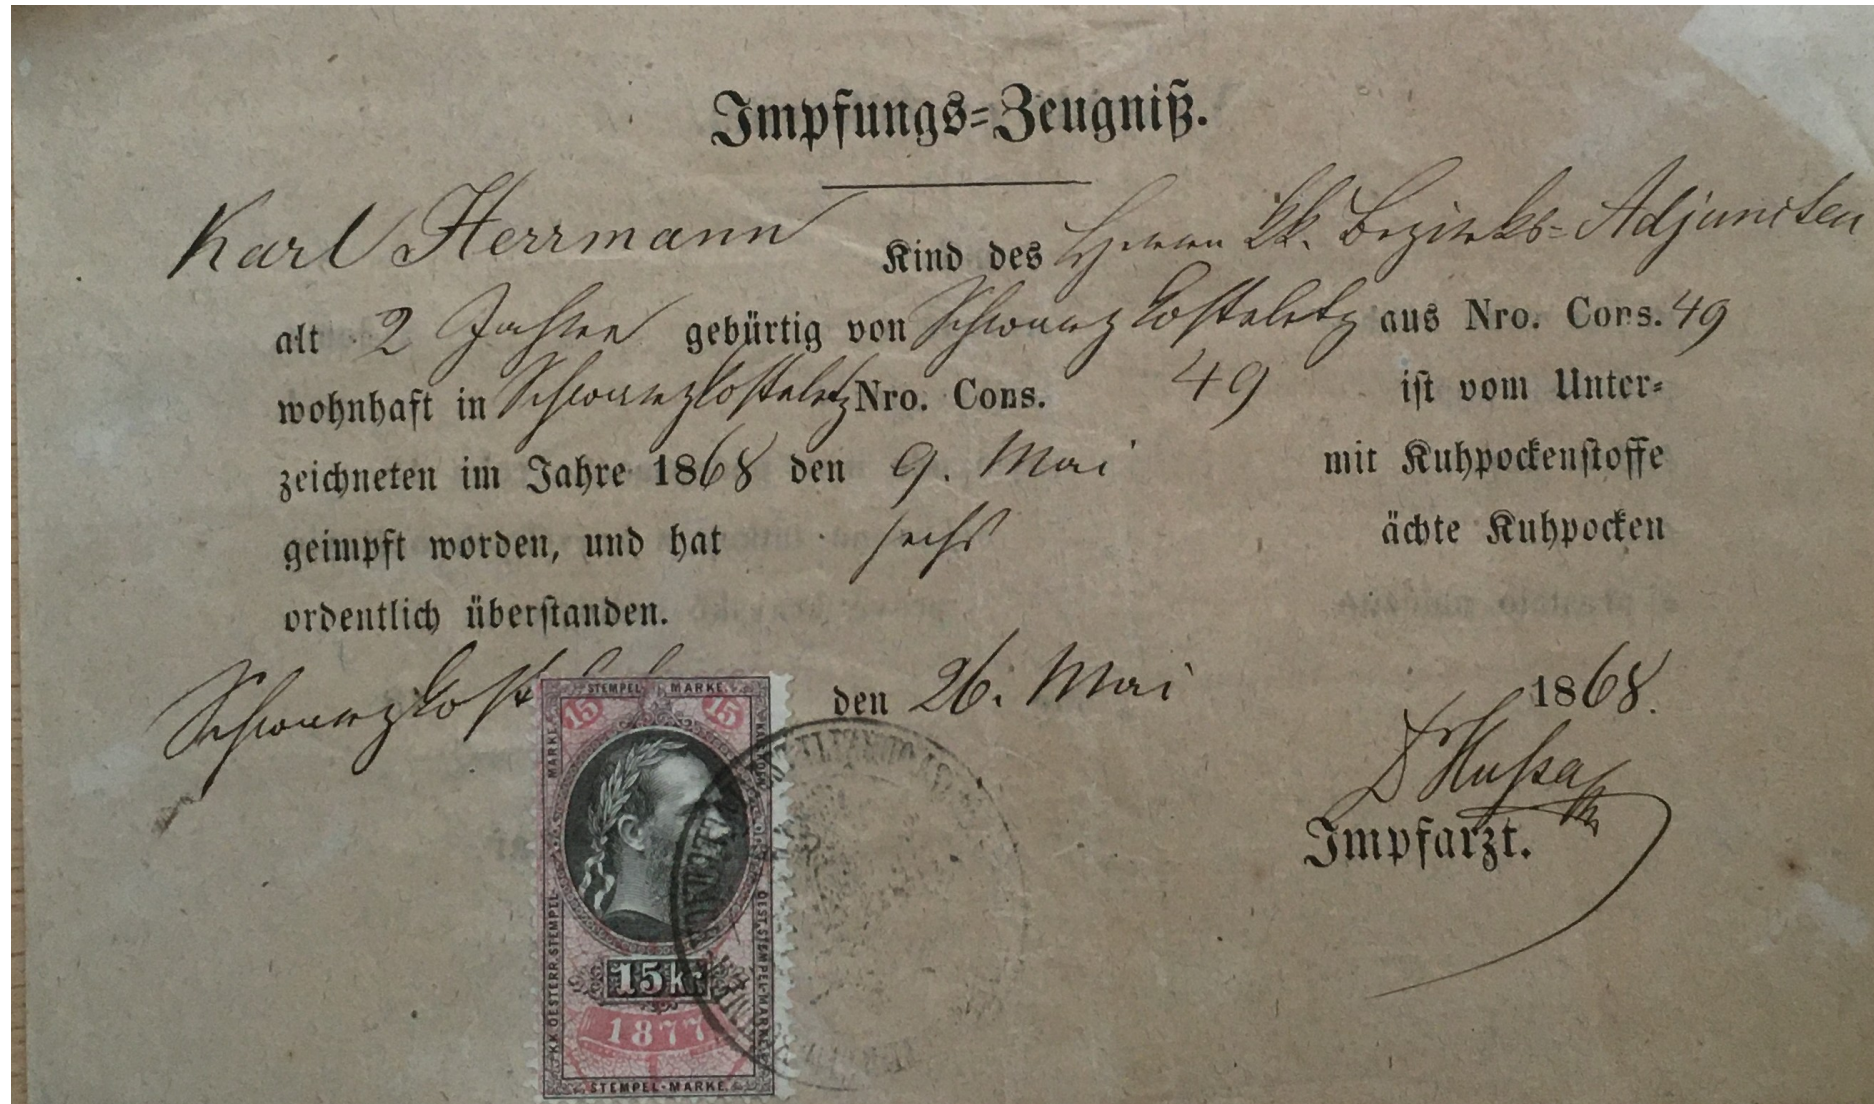 Impfungs-Zeugniß.
Karl Herrmann Kind des Herrn kk. Bezirks-Adjuncten
alt 2 Jahre gebürtig von Schwarzkosteletz aus Nro. Cons. 49
wohnhaft in Schwarzkosteletz Nro. Cons. 49 ist vom Unter-
zeichneten im Jahre 1868 den 9. Mai mit Kuhpockenstoffe
geimpft worden, und hat sechs ächte Kuhpocken
ordentlich überstanden.
Schwarzkost den 26. Mai 1868.
Dr Hussa
Impfarzt.
STEMPEL MARKE
15 15
15 kr
1877
STEMPEL-MARKE
KK OESTERR. STEMPEL-MARKE
OEST. STEMPEL-MARKE